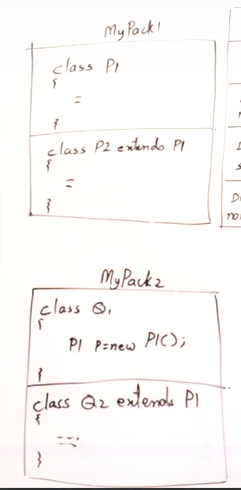 MyPack1
class P1
{
=
}
class P2 extends P1
{
=
}
MyPack2
class Q1
{
P1 p=new P1();
}
class Q2 extends P1
{
==;
}